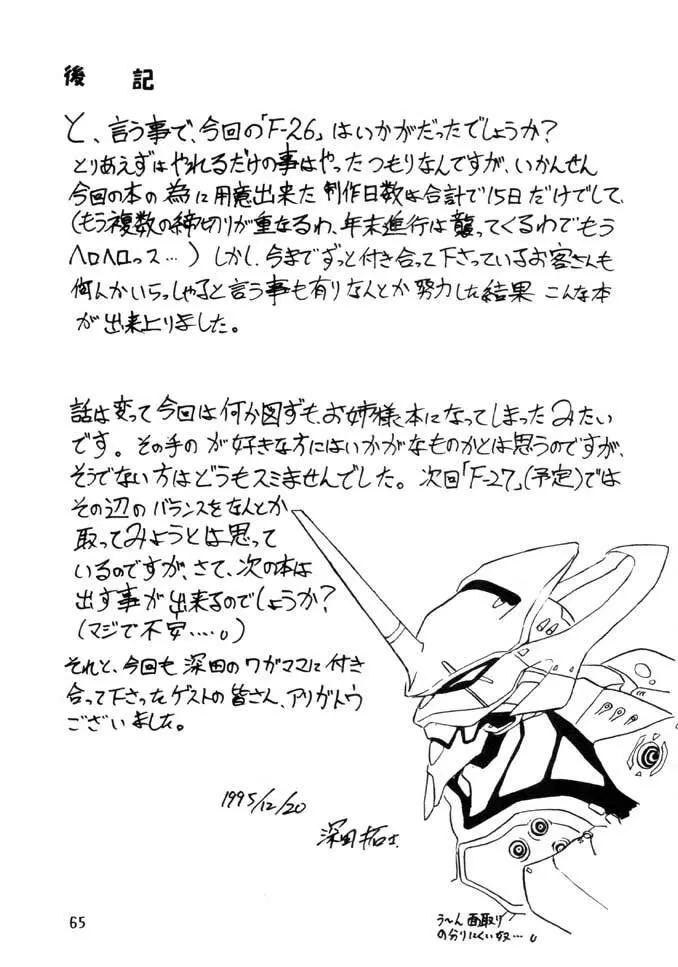 後記
と、言う事で、今回の「F-26」はいかがだったでしょうか?
とりあえずはやれるだけの事はやったつもりなんですが、いかんせん
今回の本の為に用意出来た制作日数は合計で15日だけでして、
(もう複数の締切りが重なるわ、年末進行は襲ってくるわでもう
ヘロヘロっス…)しかし、今までずっと付き合って下さっているお客さんも
何人かいらっしゃると言う事も有りなんとか努力した結果 こんな本
が出来上りました。
話は変って今回は何か図ずも、お姉様本になってしまったみたい
です。その手のが好きな方にはいかがなものかとは思うのですが、
そうでない方はどうもスミませんでした。次回「F-27」(予定)では
その辺のバランスをなんとか
取ってみようとは思って
いるのですが、さて、次の本は
出す事が出来るのでしょうか?
(マジで不安……。)
それと、今回も深田のワガママに付き
合って下さったゲストの皆さん、アリガトウ
ございました。
1995/12/20
深田拓士
う〜ん面取り
の分りにくい奴…。
65